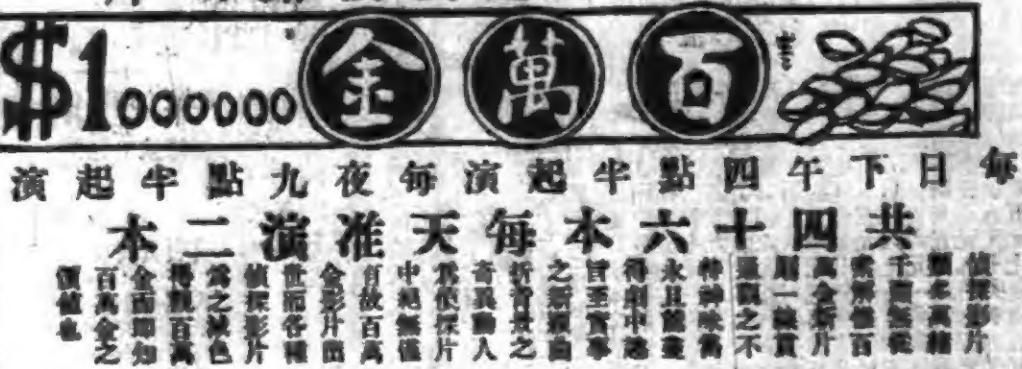 百萬金
$10000000
每日下午四點半起演每夜九點半起演
共四十六本每天准演二本
偵探影片
類多萬緒
千頭無從
索解惟百
萬金影片
用一線貫
觀之不
得劇中
旨至實事
之新穎曲
折背景之
奇異動人
爲偵探片
中絕無僅
有故百萬
金影片出
世而各種
偵探影片
爲之減色
得觀百萬
金而即知
百萬金之
價值也